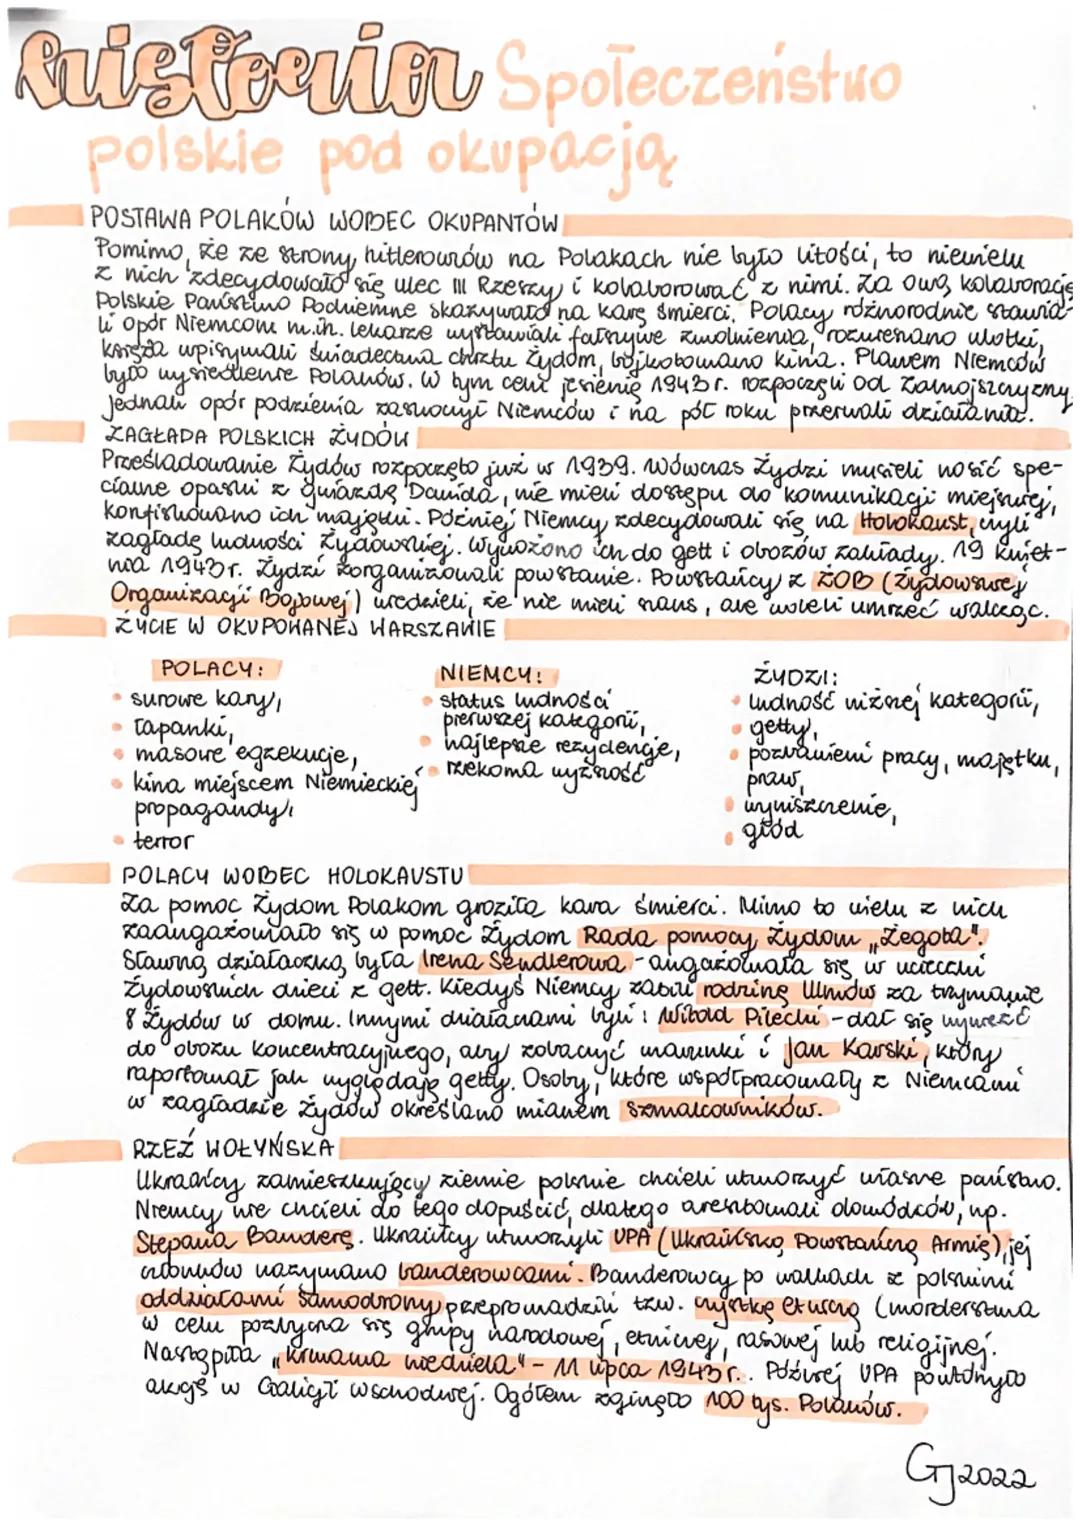 historia Społeczeństwo
polskie pod okupacją
POSTAWA POLAKÓW WOBEC OKUPANTÓW
Pomimo, że ze strony hitlerowców na Polakach nie było litości, to niewielu
z nich zdecydowało się ulec III Rzeszy i kolaborować z nimi. Za ową kolaborację
Polskie Państwo Podziemne skazywało na karę śmierci. Polacy różnorodnie stawia-
li opór Niemcom m.in. lekarze wystawiali fałszywe zwolnienia, rozwieszano ulotki,
księża wpisywali świadectwa chrztu Żydom, bojkotowano kina. Planem Niemców
było wysiedlenie Polaków. W tym celu jesienią 1943r. rozpoczęli od Zamojszczyzny.
Jednak opór podziemia zaskoczył Niemców i na pół roku przerwali działania.
ZAGŁADA POLSKICH ŻYDÓW
Prześladowanie Żydów rozpoczęto już w 1939. Wówczas Żydzi musieli nosić spe-
cjalne opaski z gwiazdą Dawida, nie mieli dostępu do komunikacji miejskiej,
konfiskowano ich majątki. Później Niemcy zdecydowali się na Holokaust, czyli
zagładę ludności żydowskiej. Wywożono ich do gett i obozów zakłady. 19 kwiet-
nia 1943r. Żydzi zorganizowali powstanie. Powstańcy z ŻOB (Żydowskiej
Organizacji Bojowej) wiedzieli, że nie mieli szans, ale woleli umrzeć walcząc.
ŻYCIE W OKUPOWANEJ WARSZAWIE
POLACY:
• surowe kary,
• łapanki,
• masowe egzekucje,
• kina miejscem Niemieckiej
propagandy,
• terror
NIEMCY:
• status ludności
pierwszej kategorii,
• najlepsze rezydencje,
• rzekoma wyższość
ŻYDZI:
• ludność niższej kategorii,
• getty,
• pozbawieni pracy, majątku,
praw,
• wyniszczenie,
• głód
POLACY WOBEC HOLOKAUSTU
Za pomoc Żydom Polakom groziła kara śmierci. Mimo to wielu z nich
zaangażowało się w pomoc Żydom Rada pomocy Żydom „Żegota".
Sławną działaczką była Irena Sendlerowa - angażowała się w
żydowskich dzieci z gett. Kiedyś Niemcy zabili rodzinę Ulmów za trzymanie
8 Żydów w domu. Innymi działaczami byli: Witold Pilecki - dał się wywieźć
do obozu koncentracyjnego, aby zobaczyć warunki i Jan Karski, który
raportował jak wyglądają getty. Osoby, które współpracowały z Niemcami
w zagładzie Żydów określano mianem szmalcowników.
RZEŹ WOŁYŃSKA
Ukraińcy zamieszkujący ziemie polskie chcieli utworzyć własne państwo.
Niemcy nie chcieli do tego dopuścić, dlatego aresztowali dowódców, np.
Stepana Banderę. Ukraińcy utworzyli UPA (Ukraińską Powstańczą Armię), jej
członków nazywano banderowcami. Banderowcy po walkach z polskimi
oddziałami samoobrony przeprowadzili tzw. czystkę etniczną (morderstwa
w celu pozbycia się grupy narodowej, etnicznej, rasowej lub religijnej.
Nastąpiła „krwawa niedziela" - 11 lipca 1943r.. Później UPA powtórzyło
akcję w Galicji wschodniej. Ogółem zginęło 100 tys. Polaków.
GJ2022